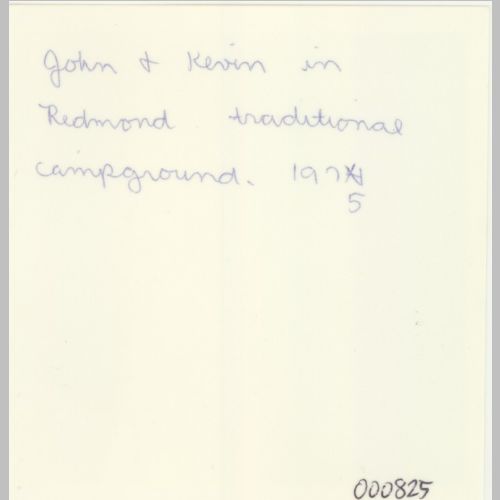 John & Kevin in
Redmond traditional
campground. 197
5
000825